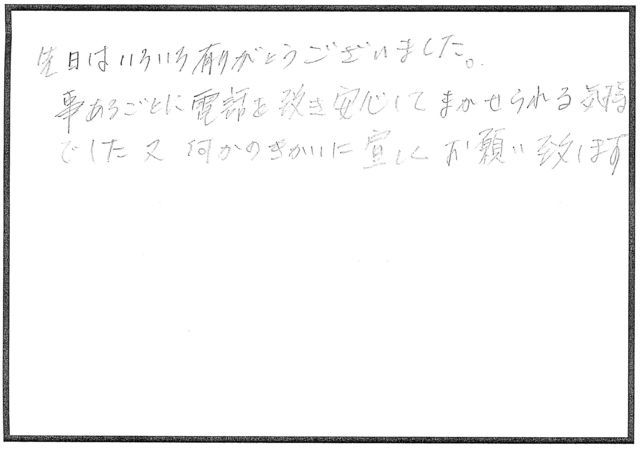 先日はいろいろ有りがとうございました。
事あるごとに電話を致き安心してまかせられる気持
でした又何かのきかいに宜しくお願い致します